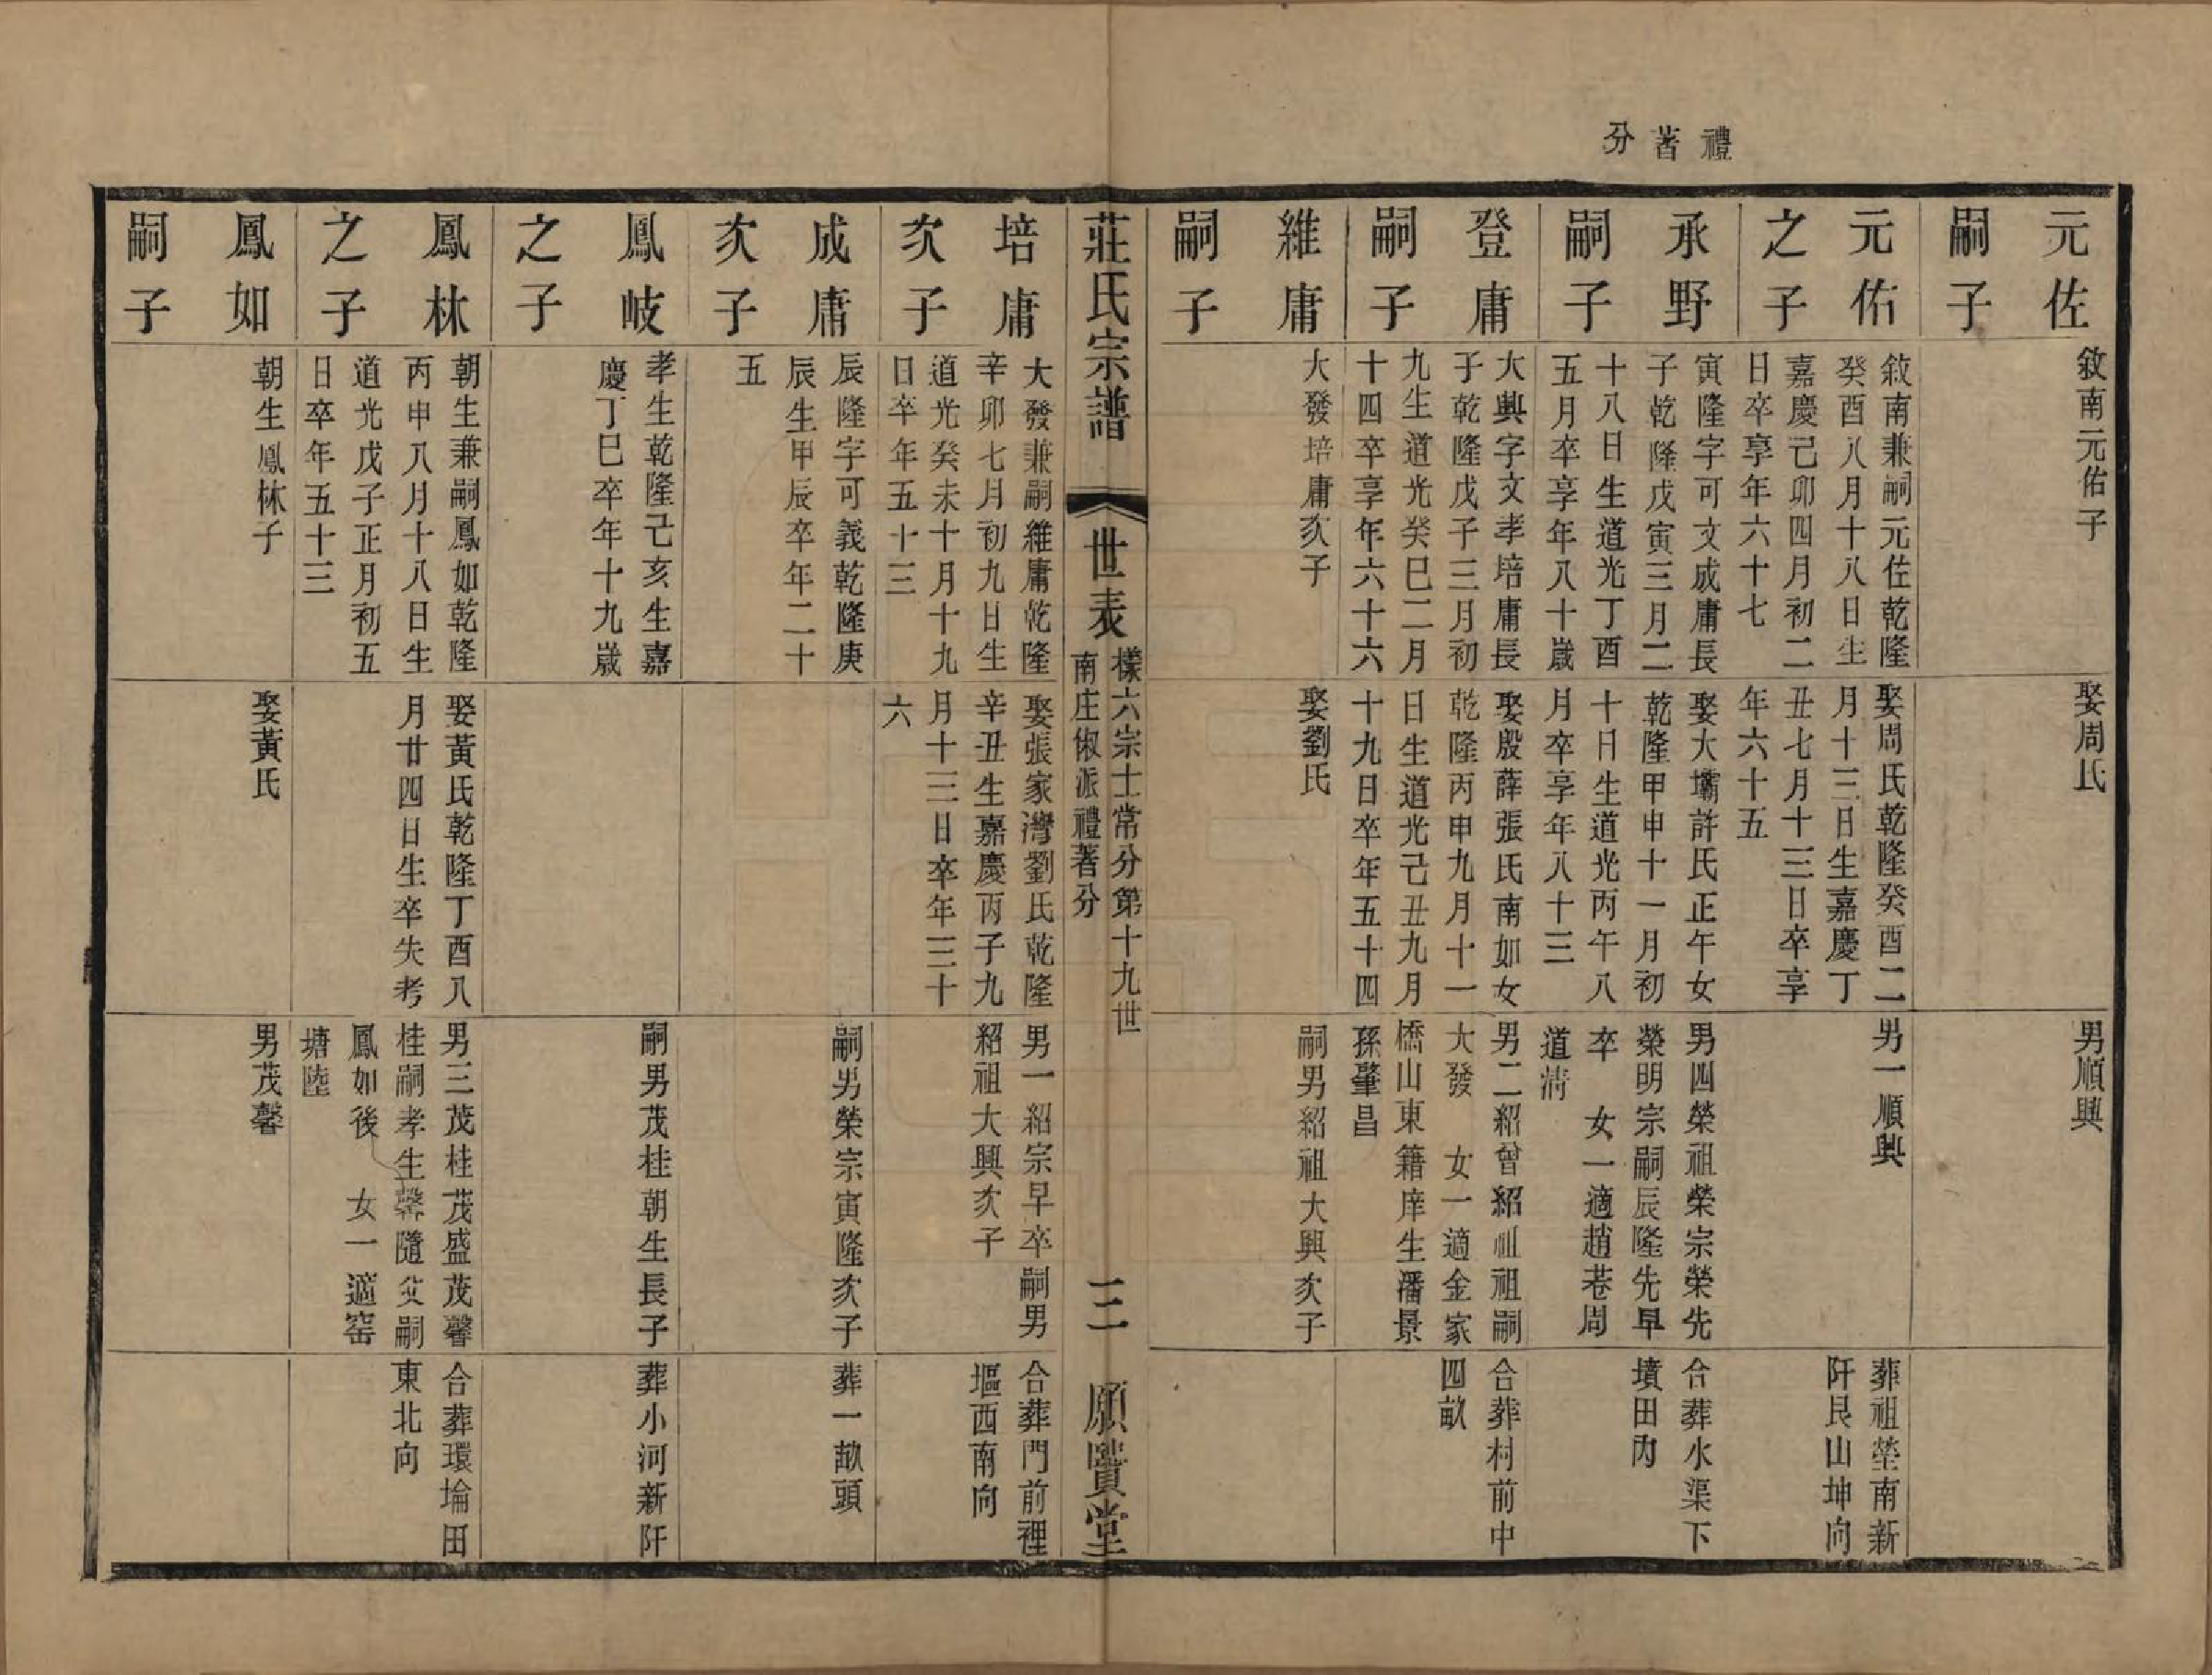 禮著分
元佐
嗣子
敘南元佑子
娶周氏
男順興
元佑
之子
敘南兼嗣元佐乾隆
癸酉八月十八日生
嘉慶己卯四月初二
日卒享年六十七
娶周氏乾隆癸酉二
月十三日生嘉慶丁
丑七月十三日卒享
年六十五
男一順興
葬祖塋南新
阡艮山坤向
承野
嗣子
寅隆字可文成庸長
子乾隆戊寅三月二
十八日生道光丁酉
五月卒享年八十歲
娶大壩許氏正午女
乾隆甲申十一月初
十日生道光丙午八
月卒享年八十三
男四榮祖榮宗榮先
榮明宗嗣辰隆先早
卒 女一適趙巷周
道淸
合葬水渠下
墳田內
登庸
嗣子
大興字文孝培庸長
子乾隆戊子三月初
九生道光癸巳二月
十四卒享年六十六
娶殷薛張氏南如女
乾隆丙申九月十一
日生道光己丑九月
十九日卒年五十四
男二紹曾紹祖祖嗣
大發 女一適金家
橋山東籍庠生潘景
孫肇昌
合葬村前中
四畝
維庸
嗣子
大發培庸次子
娶劉氏
嗣男紹祖大興次子
莊氏宗譜
世表
樣六宗士常分第十九世
南庄俶派禮著分
三
願賢堂
培庸
次子
大發兼嗣維庸乾隆
辛卯七月初九日生
道光癸未十月十九
日卒年五十三
娶張家灣劉氏乾隆
辛丑生嘉慶丙子九
月十三日卒年三十
六
男一紹宗早卒嗣男
紹祖大興次子
合葬門前裡
塸西南向
成庸
次子
辰隆字可義乾隆庚
辰生甲辰卒年二十
五
嗣男榮宗寅隆次子
葬一畝頭
鳳岐
之子
孝生乾隆己亥生嘉
慶丁巳卒年十九歲
嗣男茂桂朝生長子
葬小河新阡
鳳林
之子
朝生兼嗣鳳如乾隆
丙申八月十八日生
道光戊子正月初五
日卒年五十三
娶黃氏乾隆丁酉八
月廿四日生卒失考
男三茂桂茂盛茂馨
桂嗣孝生馨隨父嗣
鳳如後 女一適窑
塘陸
合葬環埨田
東北向
鳳如
嗣子
朝生鳳林子
娶黃氏
男茂馨